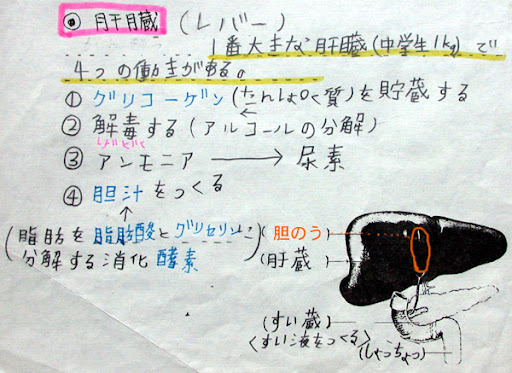 ◎ 肝臓 (レバー)
1番大きな肝臓(中学生1kg)で
4つの働きがある。
① グリコーゲン(たんぱく質)を貯蔵する
② 解毒する(アルコールの分解)
③ アンモニア → 尿素
④ 胆汁をつくる
↑
(脂肪を脂肪酸とグリセリンに
分解する消化酵素)
(胆のう)
(肝蔵)
(すい蔵)
<すい液をつくる>